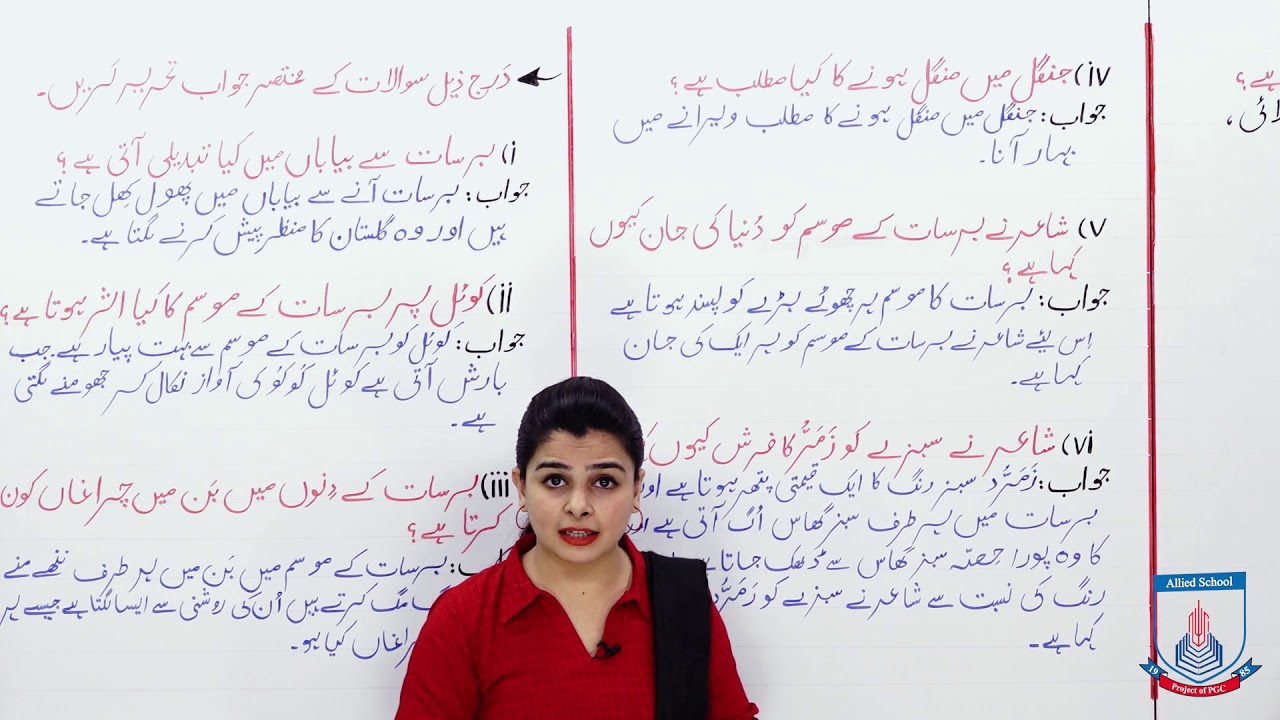 درج ذیل سوالات کے مختصر جواب تحریر کریں۔
i) برسات سے بیاباں میں کیا تبدیلی آتی ہے؟
جواب: برسات آنے سے بیاباں میں پھول کِھل جاتے
ہیں اور وہ گلستان کا منظر پیش کرنے لگتا ہے۔
ii) کوئل پر برسات کے موسم کا کیا اثر ہوتا ہے؟
جواب: کوئل کو برسات کے موسم سے بہت پیار ہے۔ جب
بارش آتی ہے کوئل کُوکُو کی آواز نکال کر جھومنے لگتی
ہے۔
iii) برسات کے دِنوں میں بَن میں چراغاں کون
کرتا ہے؟
برسات کے موسم میں بَن میں ہر طرف ننھے منے
مگ کرتے ہیں اُن کی روشنی سے ایسا لگتا ہے جیسے ہر
کیا ہو۔
iv) جنگل میں منگل ہونے کا کیا مطلب ہے؟
جواب: جنگل میں منگل ہونے کا مطلب ویرانے میں
بہار آنا۔
v) شاعر نے برسات کے موسم کو دُنیا کی جان کیوں
کہا ہے؟
جواب: برسات کا موسم ہر چھوٹے بڑے کو پسند ہوتا ہے
اِس لیئے شاعر نے برسات کے موسم کو ہر ایک کی جان
کہا ہے۔
vi) شاعر نے سبزے کو زَمَرُّد کا فرش کیوں
جواب: زَمَرُّد سبز رنگ کا ایک قیمتی پتھر ہوتا ہے اور
برسات میں ہر طرف سبز گھاس اُگ آتی ہے
کا وہ پورا حِصّہ سبز گھاس سے ڈھک جاتا
رنگ کی نسبت سے شاعر نے سبزے کو زَمَرُّد
کہا ہے۔
ہے؟
Allied School
1985
Project of PGC